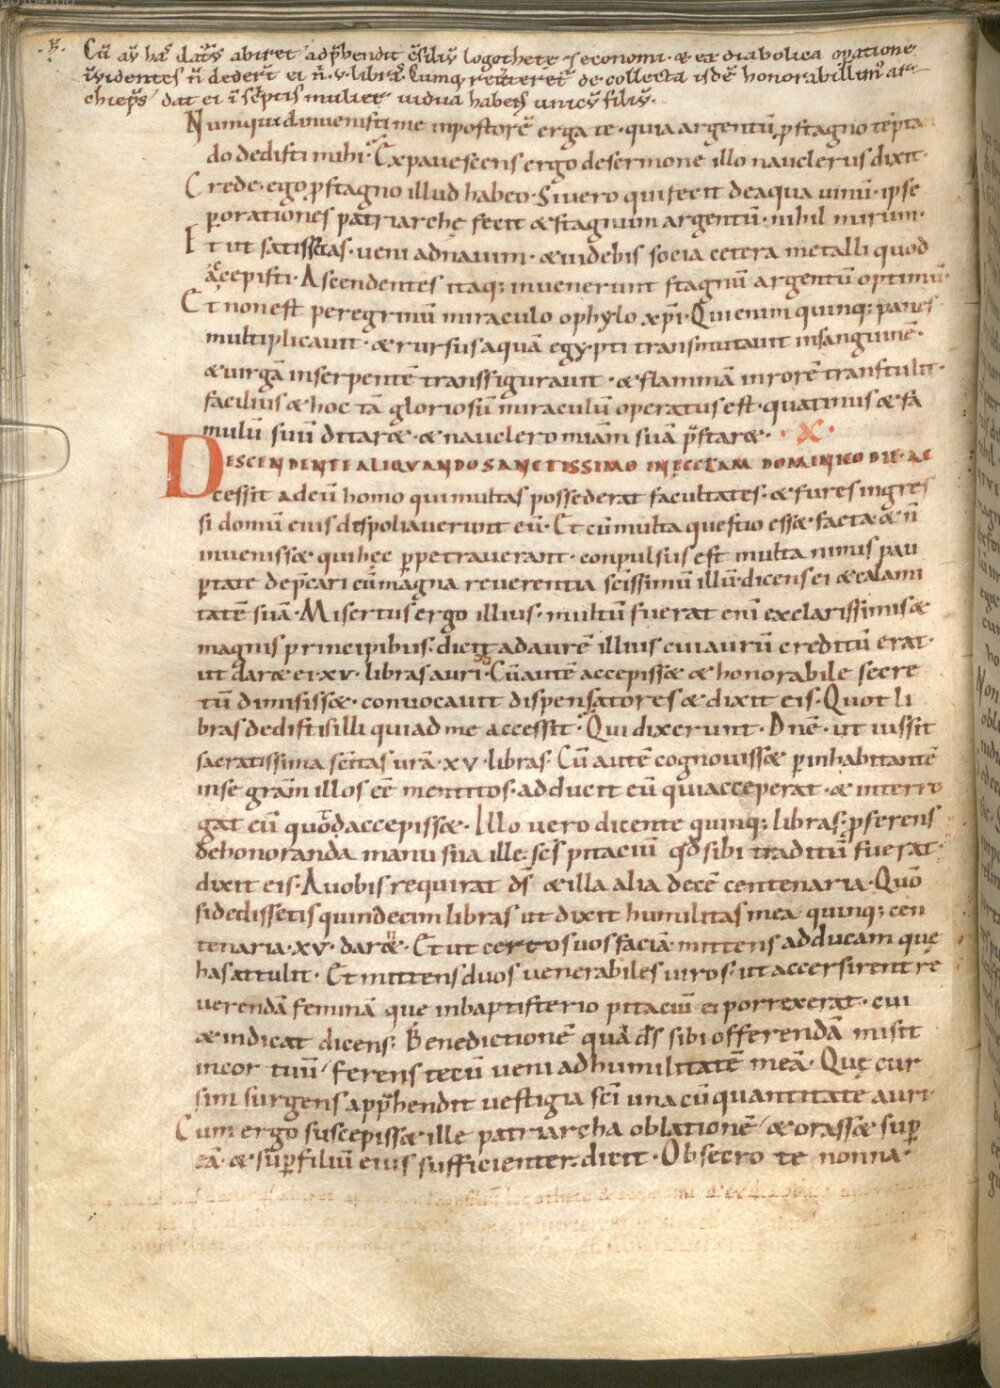 .ꝶ. Cū aū hāc dat᷒ abiret apꝑhendit c̄siliū logothete ⁊ economi · & ex diabolica oꝑatione
īvidentes n̄ dedert̄ ei n̄ · v · libras. Cumq; reuerteret̄ de collecta isdē honorabillim᷒ ar
chiep̄s / dat ei ī sc̄ptis mulier uidua habens unicū filiū.
Numquid inuenisti me inpostorē erga te · quia argentū p̄ stagno tēpta
do dedisti mihi · Expauescens ergo de sermone illo nauclerus dixit ·
Crede · ego p̄ stagno illud habeo · Si uero qui fecit de aqua uinū · ipse
ꝑ orationes patriarchę fecit & stagnum argentū · nihil mirum ·
Et ut satisfias · ueni ad nauim · & uidebis socia cetera metalli quod
accepisti · Ascendentes itaq; inuenerunt stagnū argentū optimū ·
Et non est peregrinū miraculo o phylo xp̄i · Qui enim quinq; panes
multiplicauit · & rursus aquā egypti transmutauit in sanguinē ·
& uirgā in serpentē transfigurauit · & flammā in rorē transtulit ·
facilius & hoc tā gloriosū miraculū operatus est · quatinus & fa
mulū suū ditar& · & nauclero miām suā p̄star& · · X ·
DESCENDENTE ALIQUANDO SANCTISSIMO IN ECCLAM DOMINICO DIE · AC
cessit ad eū homo qui multas possederat facultates · & fures ingres
si domū eius despoliauerunt eū · Et cū multa questio ess& facta & n̄
inueniss& qui hęc ꝑpetrauerant · conpulsus est multa nimis pau
ꝑtate dep̄cari cū magna reuerentia sc̄issimū illū · dicens ei & calami
tatē suā · Misertus ergo illius · multū fuerat enī ex clarissimis &
magnis principibus · dicit ad aurē illius cui aurū creditū erat ·
ut dar& ei · xv · libras auri · Cū autē accepiss& & honorabile secre
tū dimisiss& · conuocauit dispensatores & dixit eis · Quot li
bras dedistis illi qui ad me accessit · Qui dixerunt · Dnē · ut iussit
sacratissima sc̄itas ur̄a · xv · libras · Cū autē cognouiss& ꝑ inhabitantē
in se grām illos eē mentitos · adducit eū qui acceperat · & interro
gat eū quod accepiss& · Illo uero dicente quinq; libras · p̄ferens
de honoranda manu sua ille sc̄s pitaciū qd̄ sibi traditū fuerat ·
dixit eis · A uobis requirat d̄s & illa alia decē centenaria · Quō
si dedissetis quindecim libras ut dixit humilitas mea quinq; cen
tenaria · xv · dar& · Et ut certos uos faciā mittens adducam que
has attulit · Et mittens duos uenerabiles uiros · ut accersirent re
uerendā feminā que in baptisterio pitaciū ei porrexerat · cui
& indicat dicens · Benedictionē quā d̄s sibi offerendā misit
in cor tuū / ferens tecū ueni ad humilitatē meā · Quę cur
sim surgens app̄hendit uestigia sc̄i una cū quantitate auri ·
Cum ergo suscepiss& ille patriarcha oblationē / & orass& suꝑ
eā · & suꝑ filiū eius sufficienter · dicit · Obsecro te nonna ·